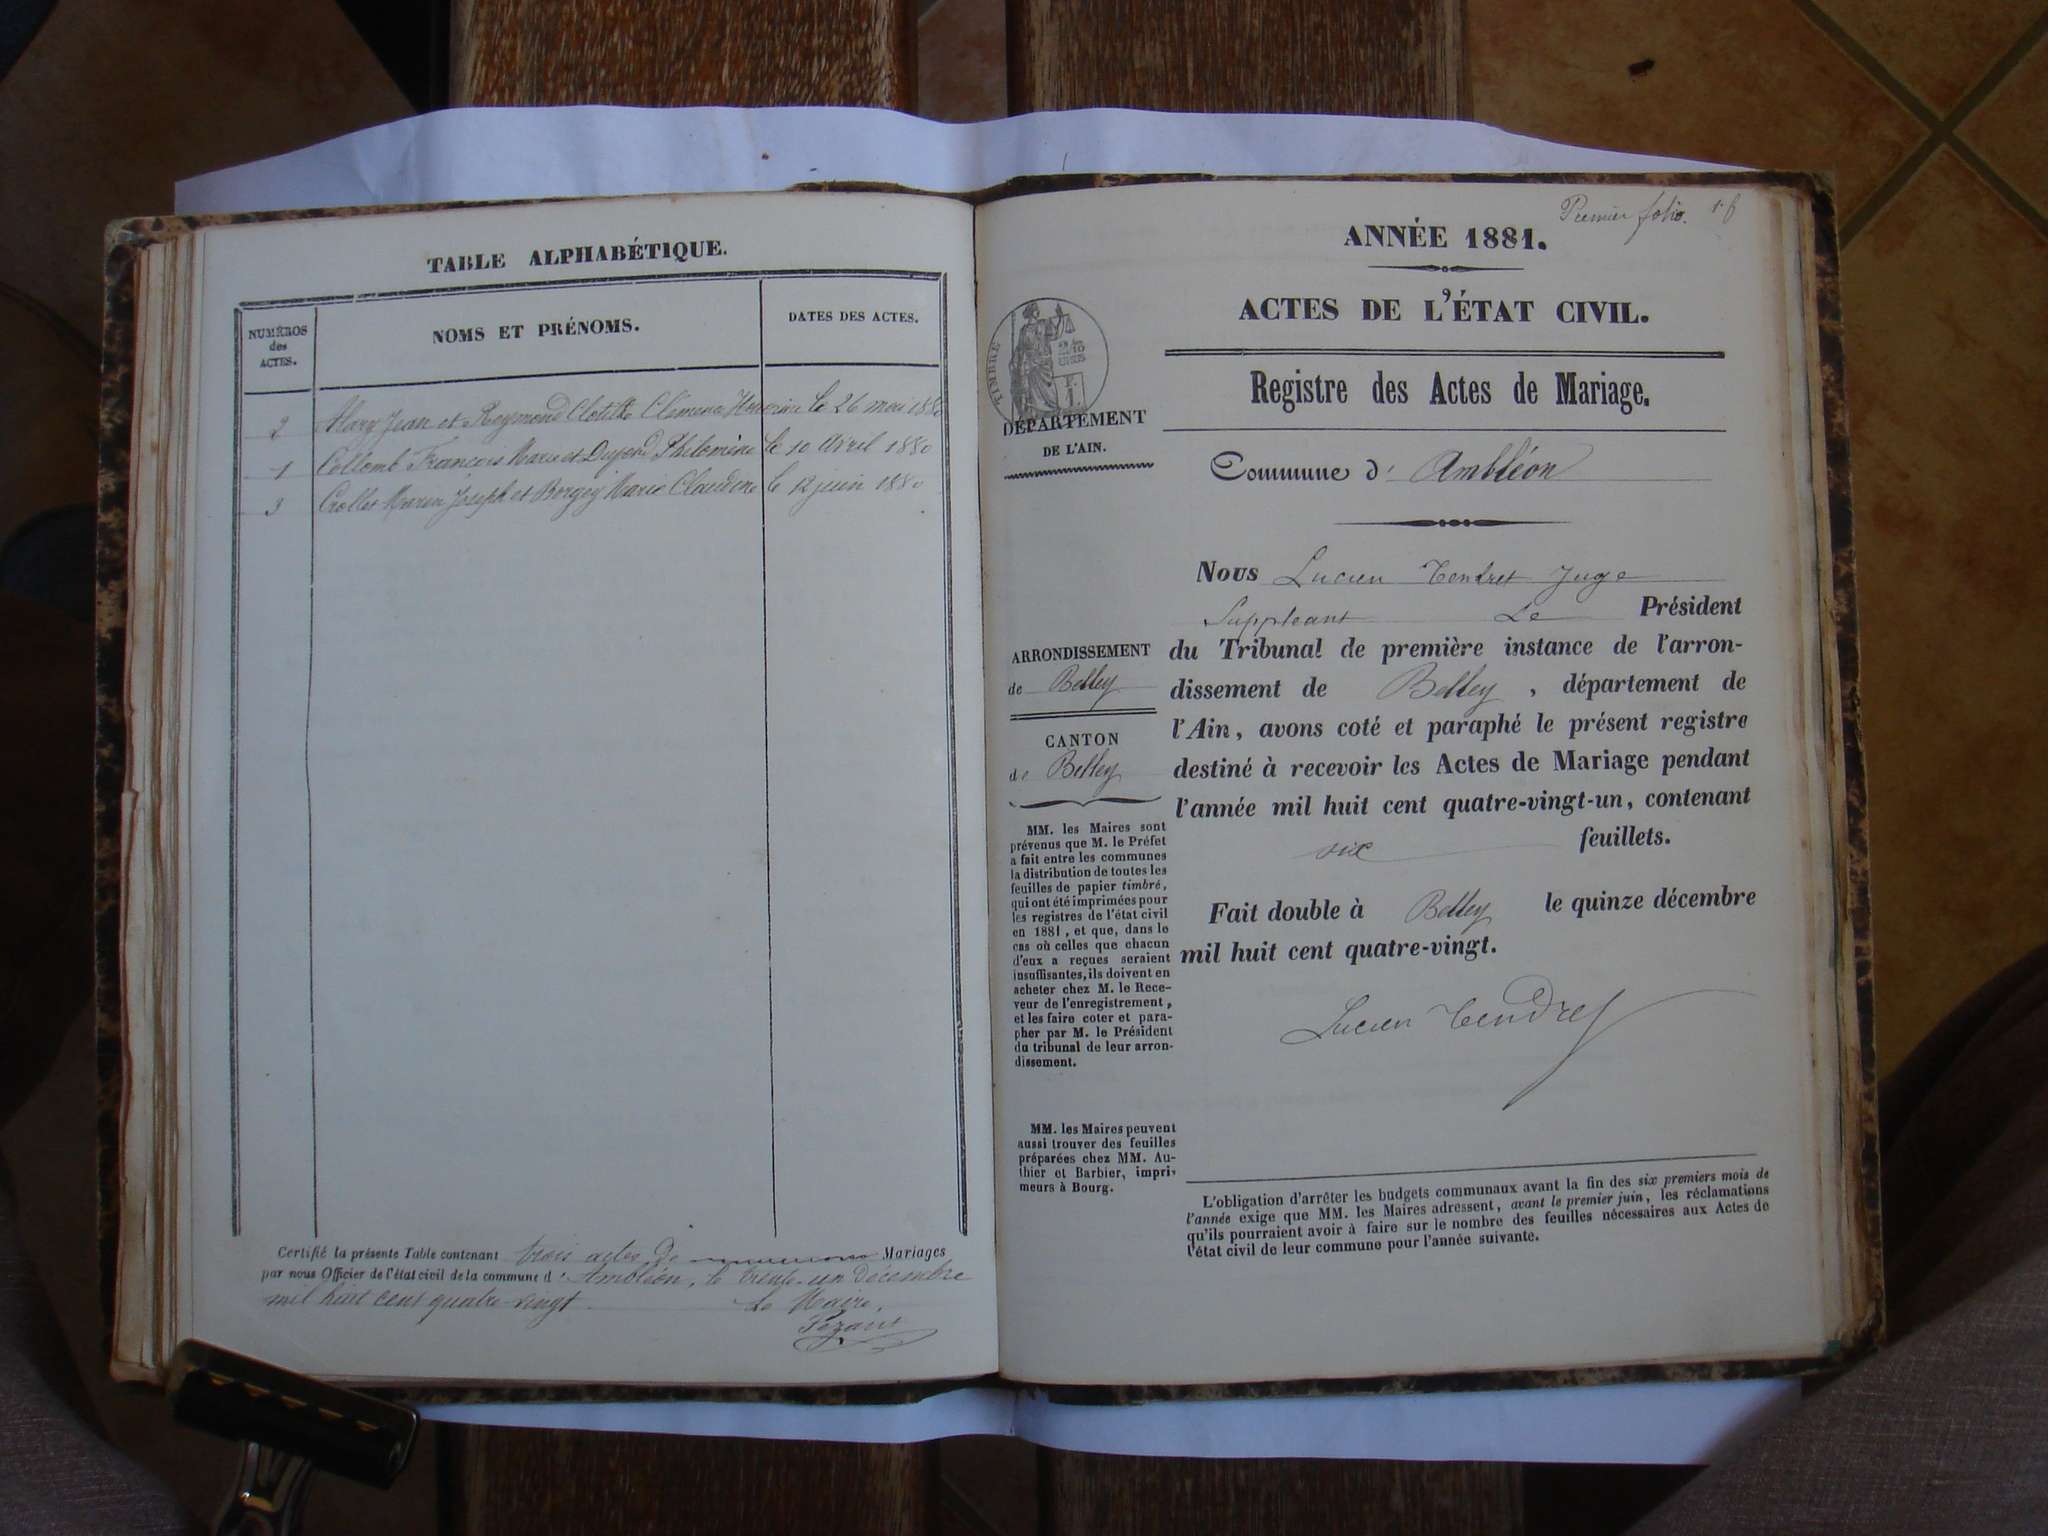 TABLE ALPHABÉTIQUE.
NUMÉROS
des
ACTES.
NOMS ET PRÉNOMS.
DATES DES ACTES.
2 Alary Jean et Reymond Clotilde Clémence Honorine le 26 mai 1880
1 Collomb François Marie et Dupond Philomène le 10 Avril 1880
3 Crollet Marin Joseph et Borgey Marie Claudine le 12 juin 1880
Certifié la présente Table contenant trois actes de Mariages
par nous Officier de l'état civil de la commune d' Ambléon, le trente-un décembre
mil huit cent quatre-vingt. Le Maire,
Pezant
Premier folio.
ANNÉE 1881.
ACTES DE L'ÉTAT CIVIL.
Registre des Actes de Mariage.
TIMBRE
DÉPARTEMENT
DE L'AIN.
Commune d' Ambléon
Nous Lucien Tendret Juge
Suppléant Le Président
du Tribunal de première instance de l'arron-
dissement de Belley, département de
l'Ain, avons coté et paraphé le présent registre
destiné à recevoir les Actes de Mariage pendant
l'année mil huit cent quatre-vingt-un, contenant
six feuillets.
Fait double à Belley le quinze décembre
mil huit cent quatre-vingt.
Lucien Tendret
ARRONDISSEMENT
de Belley
CANTON
de Belley
MM. les Maires sont
prévenus que M. le Préfet
a fait entre les communes
la distribution de toutes les
feuilles de papier timbré,
qui ont été imprimées pour
les registres de l'état civil
en 1881, et que, dans le
cas où celles que chacun
d'eux a reçues seraient
insuffisantes, ils doivent en
acheter chez M. le Rece-
veur de l'enregistrement,
et les faire coter et para-
pher par M. le Président
du tribunal de leur arron-
dissement.
MM. les Maires peuvent
aussi trouver des feuilles
préparées chez MM. Au-
thier et Barbier, impri-
meurs à Bourg.
L'obligation d'arrêter les budgets communaux avant la fin des six premiers mois de
l'année exige que MM. les Maires adressent, avant le premier juin, les réclamations
qu'ils pourraient avoir à faire sur le nombre des feuilles nécessaires aux Actes de
l'état civil de leur commune pour l'année suivante.